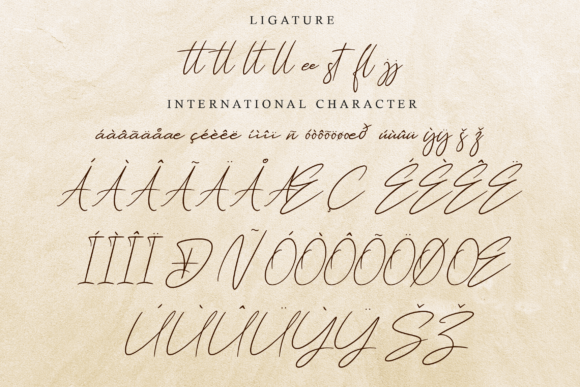 LIGATURE
tt tl lt ll ee st fl jj
INTERNATIONAL CHARACTER
áàâãäåae çéèêë íìîï ñ óòôõöøœð úùûü ýÿ š ž
ÁÀÂÃÄÅÆÇ ÉÈÊË
ÍÌÎÏ Ð Ñ ÓÒÔÕÖØŒ
ÚÙÛÜÝŸ ŠŽ